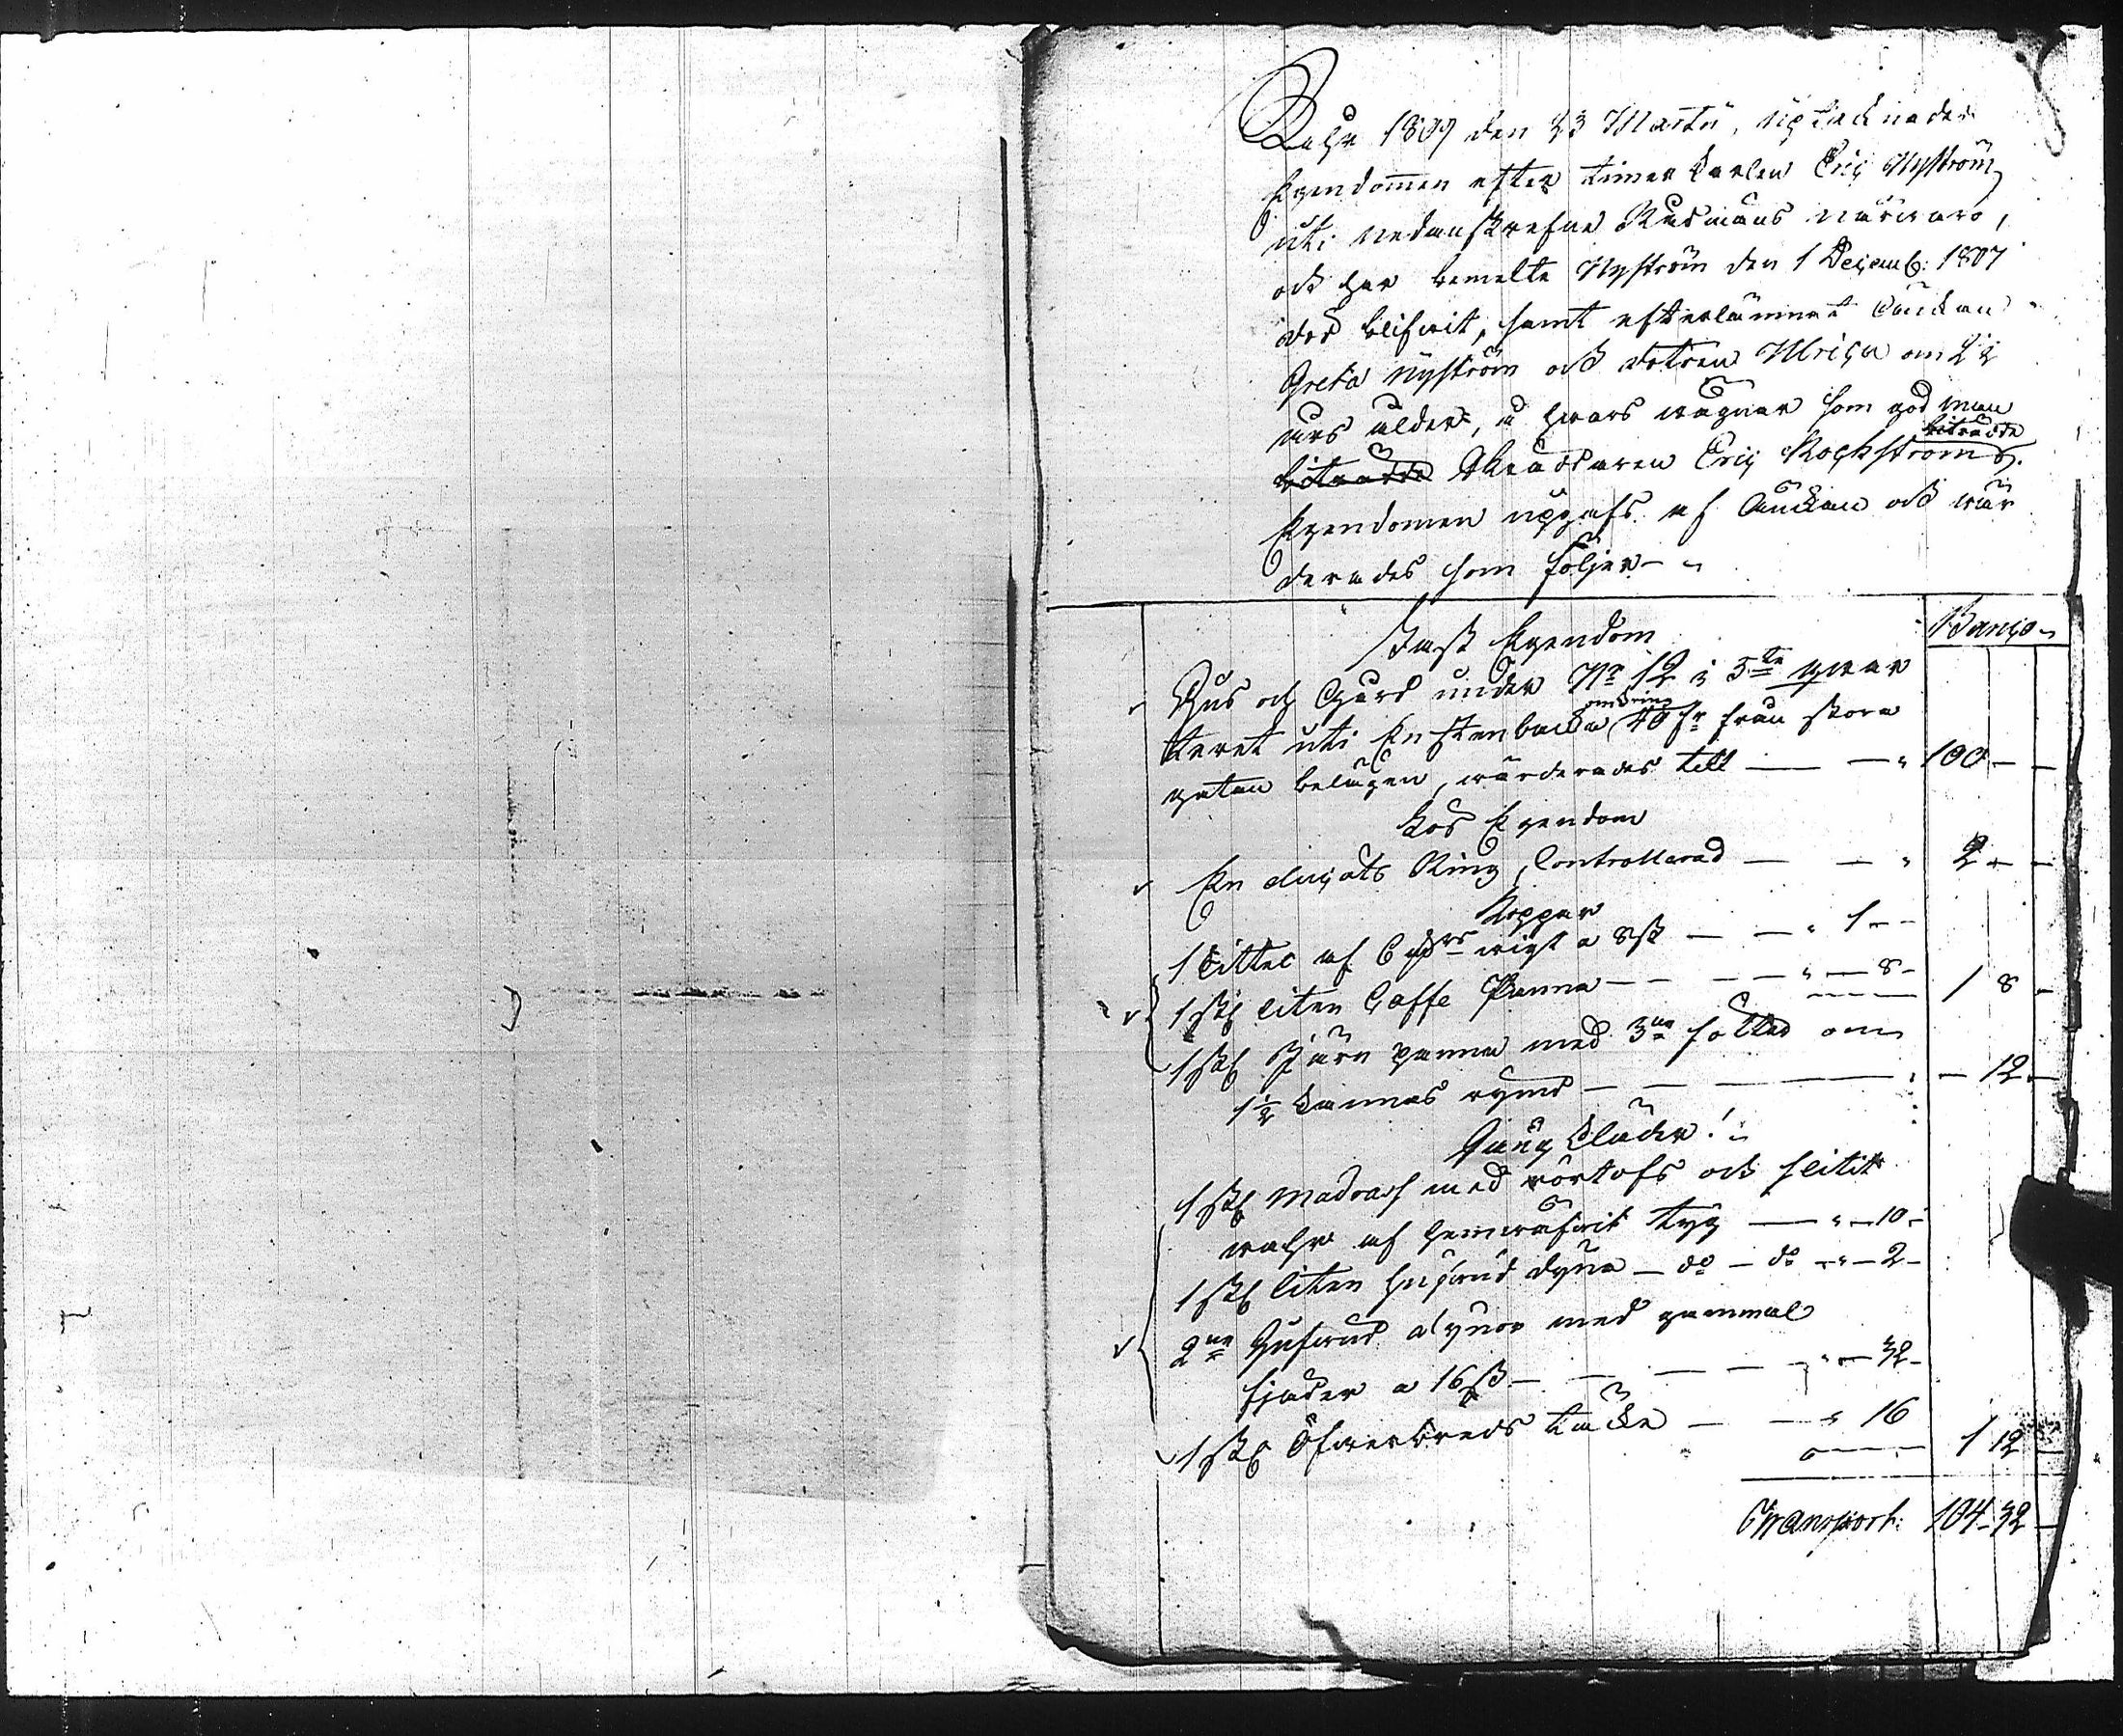 Åhr 1809 den 23 Martii, uptecknades
Egendommen efter timerkarlen Eric Nyström
uti nedanskrefne Rådmans närvaro,
och har bemelte Nyström den 1 Decemb: 1807
död blifwit, samt efterlämnat Änckan
Greta Nyström och dotren Ulrica om 2½
års ålder, å hwars wägnar som god man
biträdde
biträdde Skräddaren Eric Rockström.
Egendomen uppgafs af Änckan och wär
derades som följer
Banco
Fast Egendom
Hus och Gård under No 12 i 5te qwar
omkring
teret uti Enstenbacka 40 fr från stora
gatan belägen, wärderades till — — 100 — —
Lös Egendom
En ducats Ring, Controllerad — — 2 — —
Koppar
1 kittel af 6 wigt a 8ß — — 1 — —
1 st liten Caffe Panna — — — 8 — 1 8 —
1 st Järn panna med 3ne fötter om
1½ kannas rymd — — — — 12 —
Gång kläder
1 st Madrass med och slitit
wahr af hemwäfwit tyg — — 10 —
1 st liten hufwud dyna — do — do — 2 —
2ne Hufwud dynor med gammal
fjäder a 16ß — — — — 32 —
1 st Öfwerbreds täcke — — 16
1 12 —
Transport: 104 — 32 —